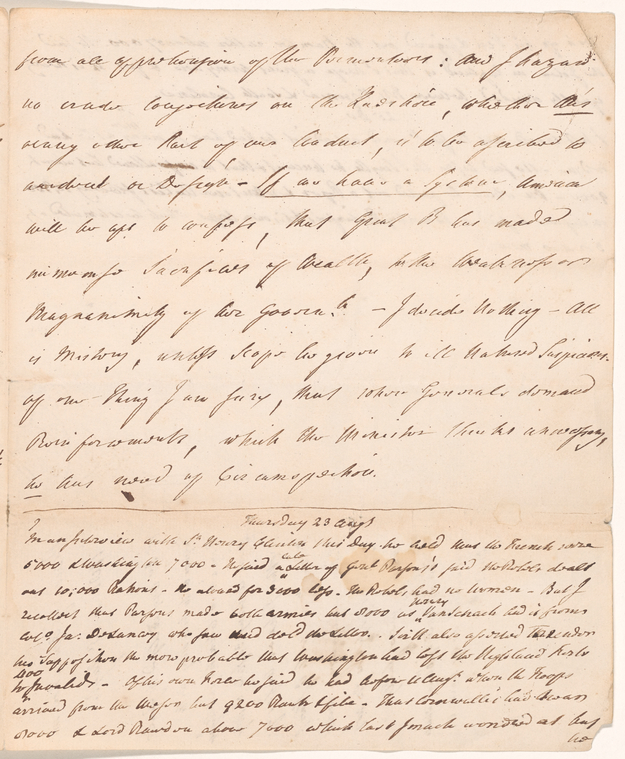 from all apprehension of the Tormentors: and I hazard
no crude Conjectures on the Question, whether this
or any other Part of our Conduct, is to be ascribed to
accident or Design - If we have a System, America
will be apt to confess, that Great B has made
immense Sacrifices of Wealth, to the Weakness or
Magnanimity of her Governt. - I decide Nothing - All
is Mistery, unless Scope be given to ill Natured Suspicions.
of one Thing I am sure, that when Generals demand
Reinforcements, which the Minister thinks unnecessary,
he has need of Circumspection.
Thursday 23 Augt
In an Interview with Sr. Henry Clinton this Day he held that the French were
5000 & Washington 7000 - He said a late Letter of Genl Parsons's said the Rebels dealt
out 10,000 Rations - He allowed for 3000 less. The Rebels had no Women - But I
recollect that Parsons made both armies but 8000 as Henry Vanschaack had it from
Colo. Ja: Delancey who saw and told the Letter. I
his Supposition the more probable that Washington had left the Highland Forts
to 400 Invalids - Of his own Force he said he had before 11 Augt when the Troops
arrived from the but 9200 Rank & file - That Cornwallis had
8000 & Lord Rawdon above 7000 which last I much wondered at but
he